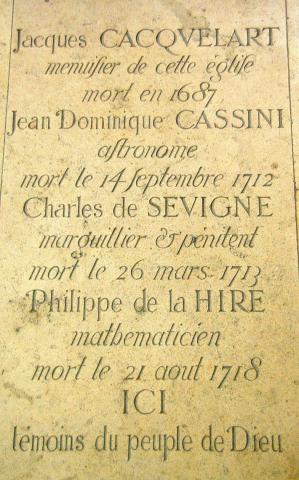 Jacques CACQVELART
menuiſier de cette égliſe
mort en 1687
Jean Dominique CASSINI
aſtronome
mort le 14 ſeptembre 1712
Charles de SEVIGNE
marguillier & pénitent
mort le 26 mars 1713
Philippe de la HIRE
mathematicien
mort le 21 aout 1718
ICI
témoins du peuple de Dieu